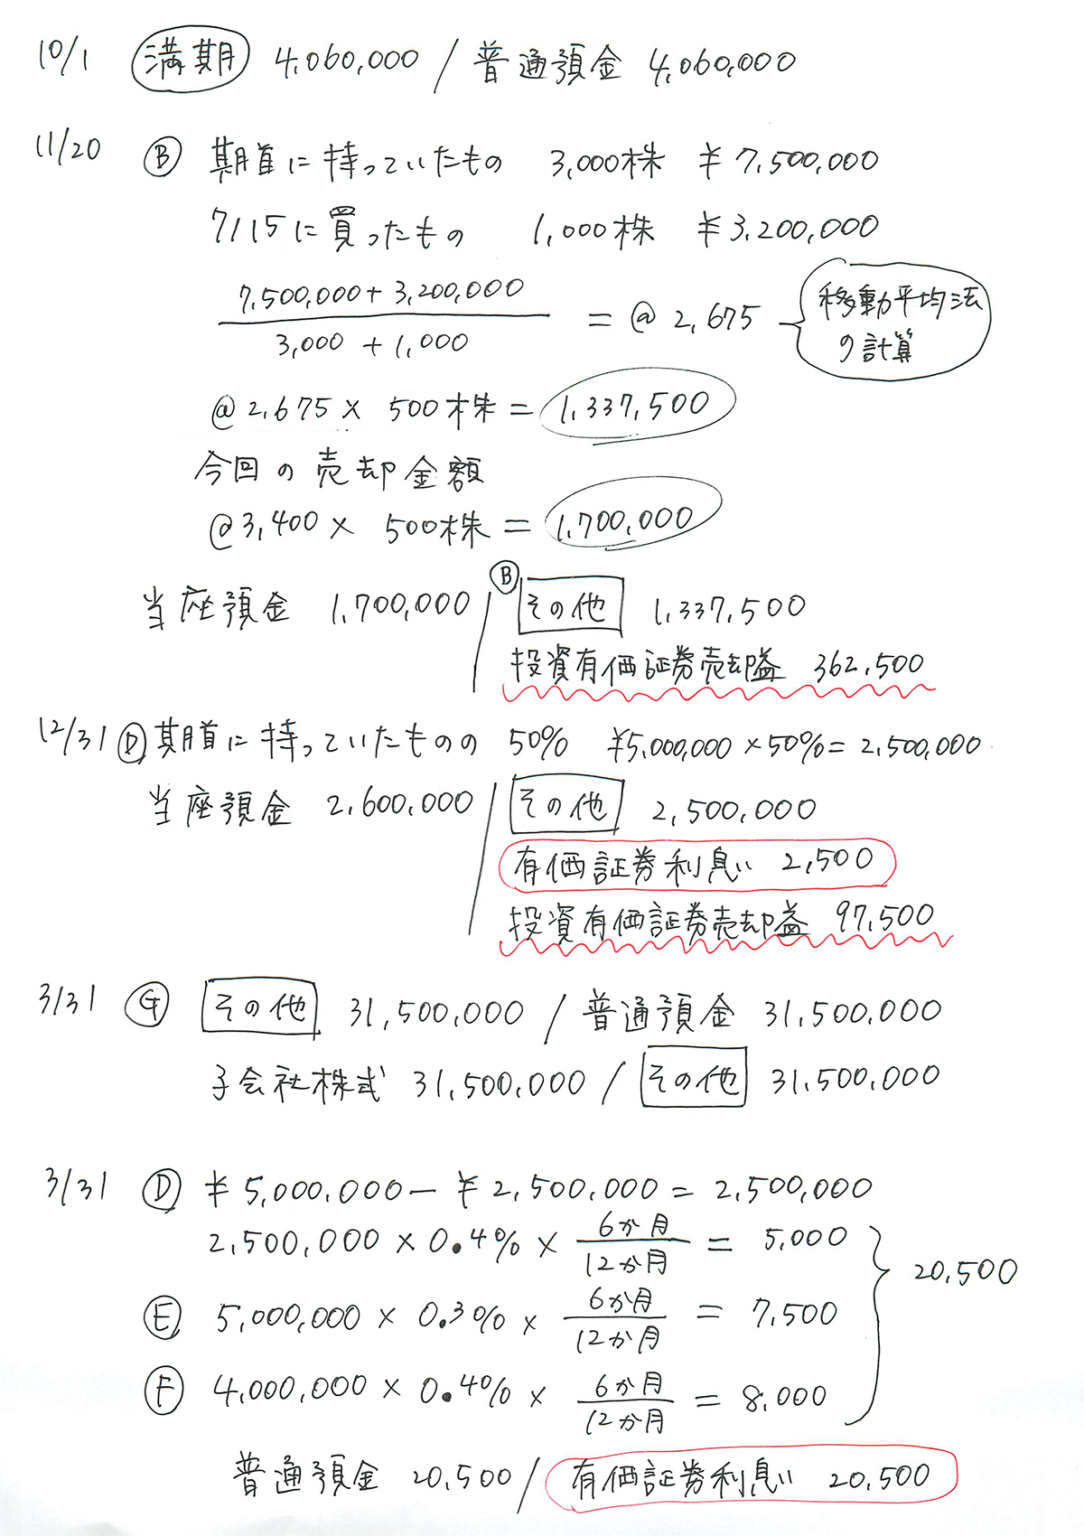 10/1 満期 4,060,000 / 普通預金 4,060,000
11/20 Ⓑ 期首に持っていたもの 3,000株 ¥7,500,000
7/15に買ったもの 1,000株 ¥3,200,000
7,500,000+3,200,000
3,000 + 1,000
= @2,675
移動平均法
の計算
@2,675 × 500株 = 1,337,500
今回の売却金額
@3,400 × 500株 = 1,700,000
当座預金 1,700,000 / Ⓑ その他 1,337,500
投資有価証券売却益 362,500
12/31 Ⓓ 期首に持っていたものの 50% ¥5,000,000×50%= 2,500,000
当座預金 2,600,000 / その他 2,500,000
有価証券利息 2,500
投資有価証券売却益 97,500
3/31 Ⓖ その他 31,500,000 / 普通預金 31,500,000
子会社株式 31,500,000 / その他 31,500,000
3/31 Ⓓ ¥5,000,000 − ¥2,500,000 = 2,500,000
2,500,000 × 0.4% × 6か月/12か月 = 5,000
Ⓔ 5,000,000 × 0.3% × 6か月/12か月 = 7,500
Ⓕ 4,000,000 × 0.4% × 6か月/12か月 = 8,000
20,500
普通預金 20,500 / 有価証券利息 20,500